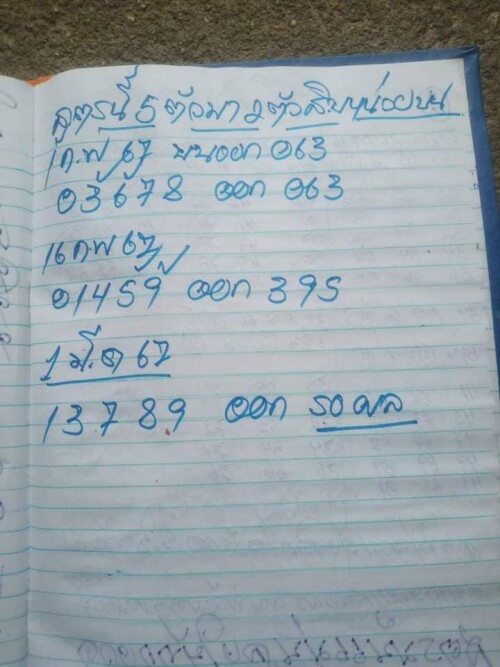 สูตรนี้ 5 ตัวมา 2 ตัวสิบหน่วยบน
1 กพ 67 บนออก 063
03678 ออก 063
16 กพ 67
01459 ออก 395
1 มี.ค 67
13789 ออก รอผล